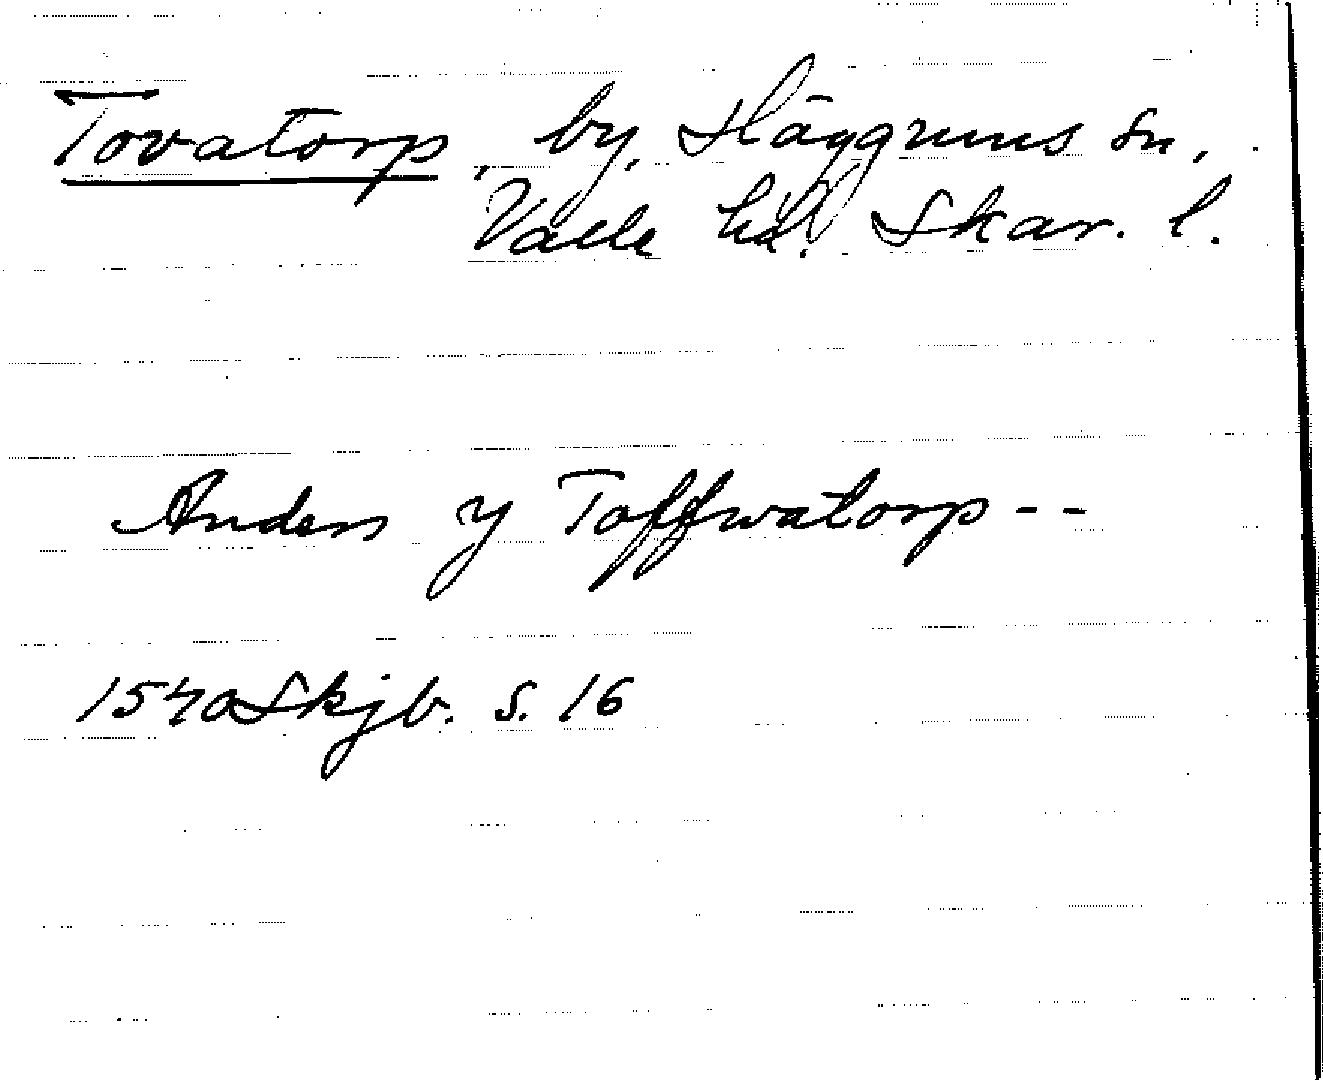 Tovatorp, by, Häggums sn,
Valle hd. Skar. l.
Anders y Toffwatorp --
1540 Skjb. s. 16